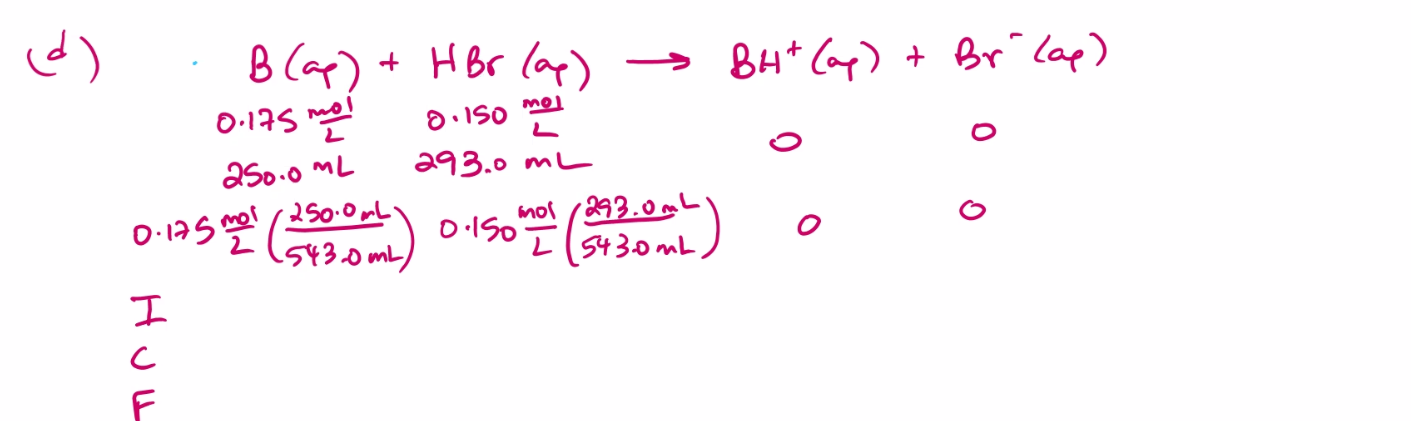 (d) B(aq) + HBr(aq) → BH⁺(aq) + Br⁻(aq)
0.175 mol/L 0.150 mol/L 0 0
250.0 mL 293.0 mL
0.175 mol/L (250.0 mL/543.0 mL) 0.150 mol/L (293.0 mL/543.0 mL) 0 0
I
C
F